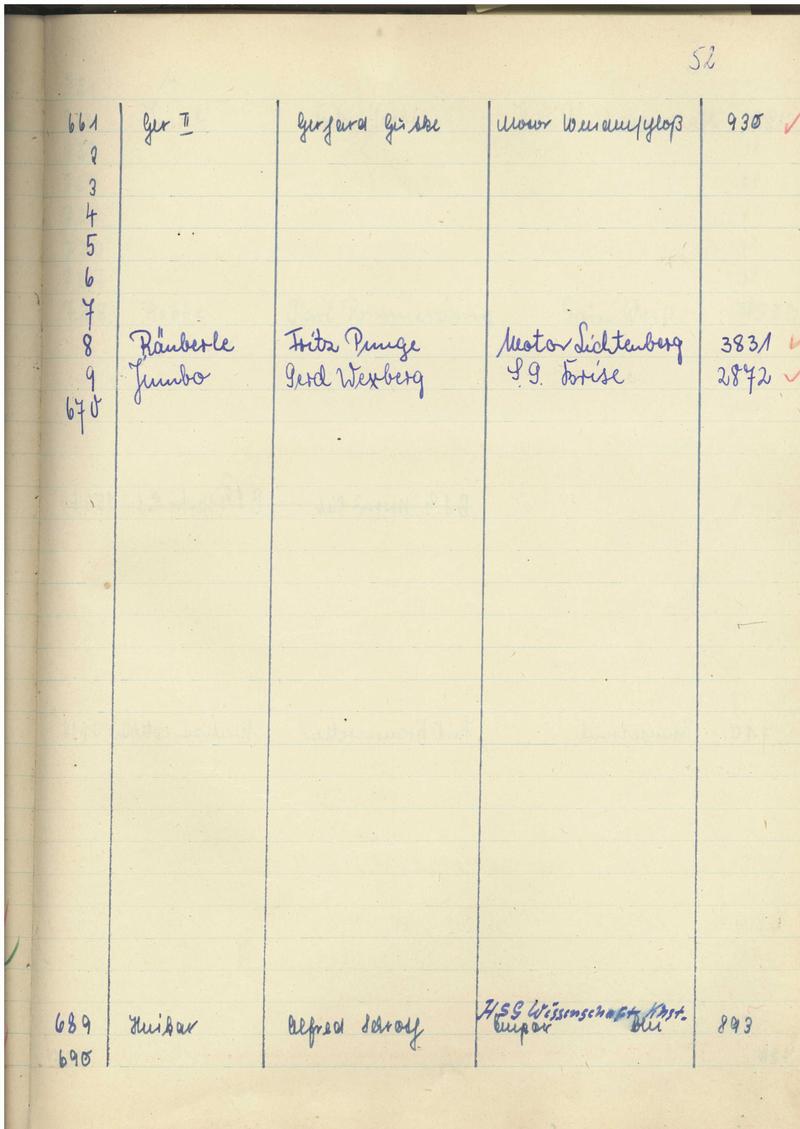 52
661 Ger II Gerhard Guske Motor Wendenschloß 930
2
3
4
5
6
7
8 Räuberle Fritz Punge Motor Lichtenberg 3831
9 Jumbo Gerd Wexberg S.G. Brise 2872
670
HSG Wissenschaft
689 Alfred Empor Bln 893
690